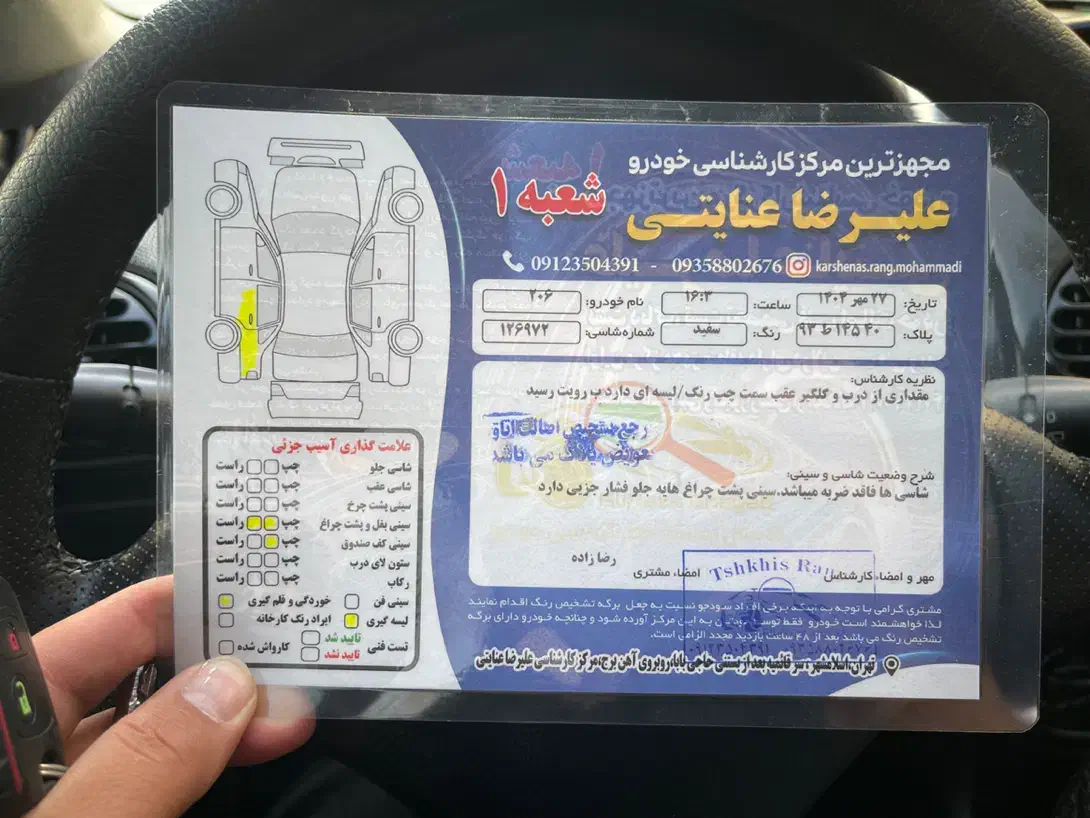 مجهزترین مرکز کارشناسی خودرو
علیرضا عنایتی
شعبه ۱
09123504391 - 09358802676 karshenas.rang.mohammadi
تاریخ: ۲۷ مهر ۱۴۰۴ ساعت: ۱۶:۳ نام خودرو: ۲۰۶
پلاک: ۴۰ ۱۴۵ ط ۹۳ رنگ: سفید شماره شاسی: ۱۲۶۹۷۲
نظریه کارشناس:
مقداری از درب و گلگیر عقب سمت چپ رنگ/لیسه ای دارد ب رویت رسید
تشخیص اصالت اتاق
تعویض پلاک می باشد
شرح وضعیت شاسی و سینی:
شاسی ها فاقد ضربه میباشد.سینی پشت چراغ هایه جلو فشار جزیی دارد
رضا زاده
مهر و امضاء کارشناس امضاء مشتری
Tshkhis Ran
مشتری گرامی با توجه به اینکه برخی افراد سودجو نسبت به جعل برگه تشخیص رنگ اقدام نمایند
لذا خواهشمند است خودرو فقط توسط خودتان به این مرکز آورده شود و چنانچه خودرو دارای برگه
تشخیص رنگ می باشد بعد از ۴۸ ساعت بازدید مجدد الزامی است.
تهران،اسلامشهر، سر قائمیه بعد از بستنی حاجی بابا،روبروی آهن برج،مرکز کارشناسی علیرضا عنایتی
علامت گذاری آسیب جزئی
شاسی جلو چپ راست
شاسی عقب چپ راست
سینی پشت چرخ چپ راست
سینی بغل و پشت چراغ چپ راست
سینی کف صندوق چپ راست
ستون لای درب چپ راست
رکاب چپ راست
سینی فن خوردگی و قلم گیری
لیسه گیری ایراد رنگ کارخانه
تست فنی تایید شد
تایید نشد کارواش شده